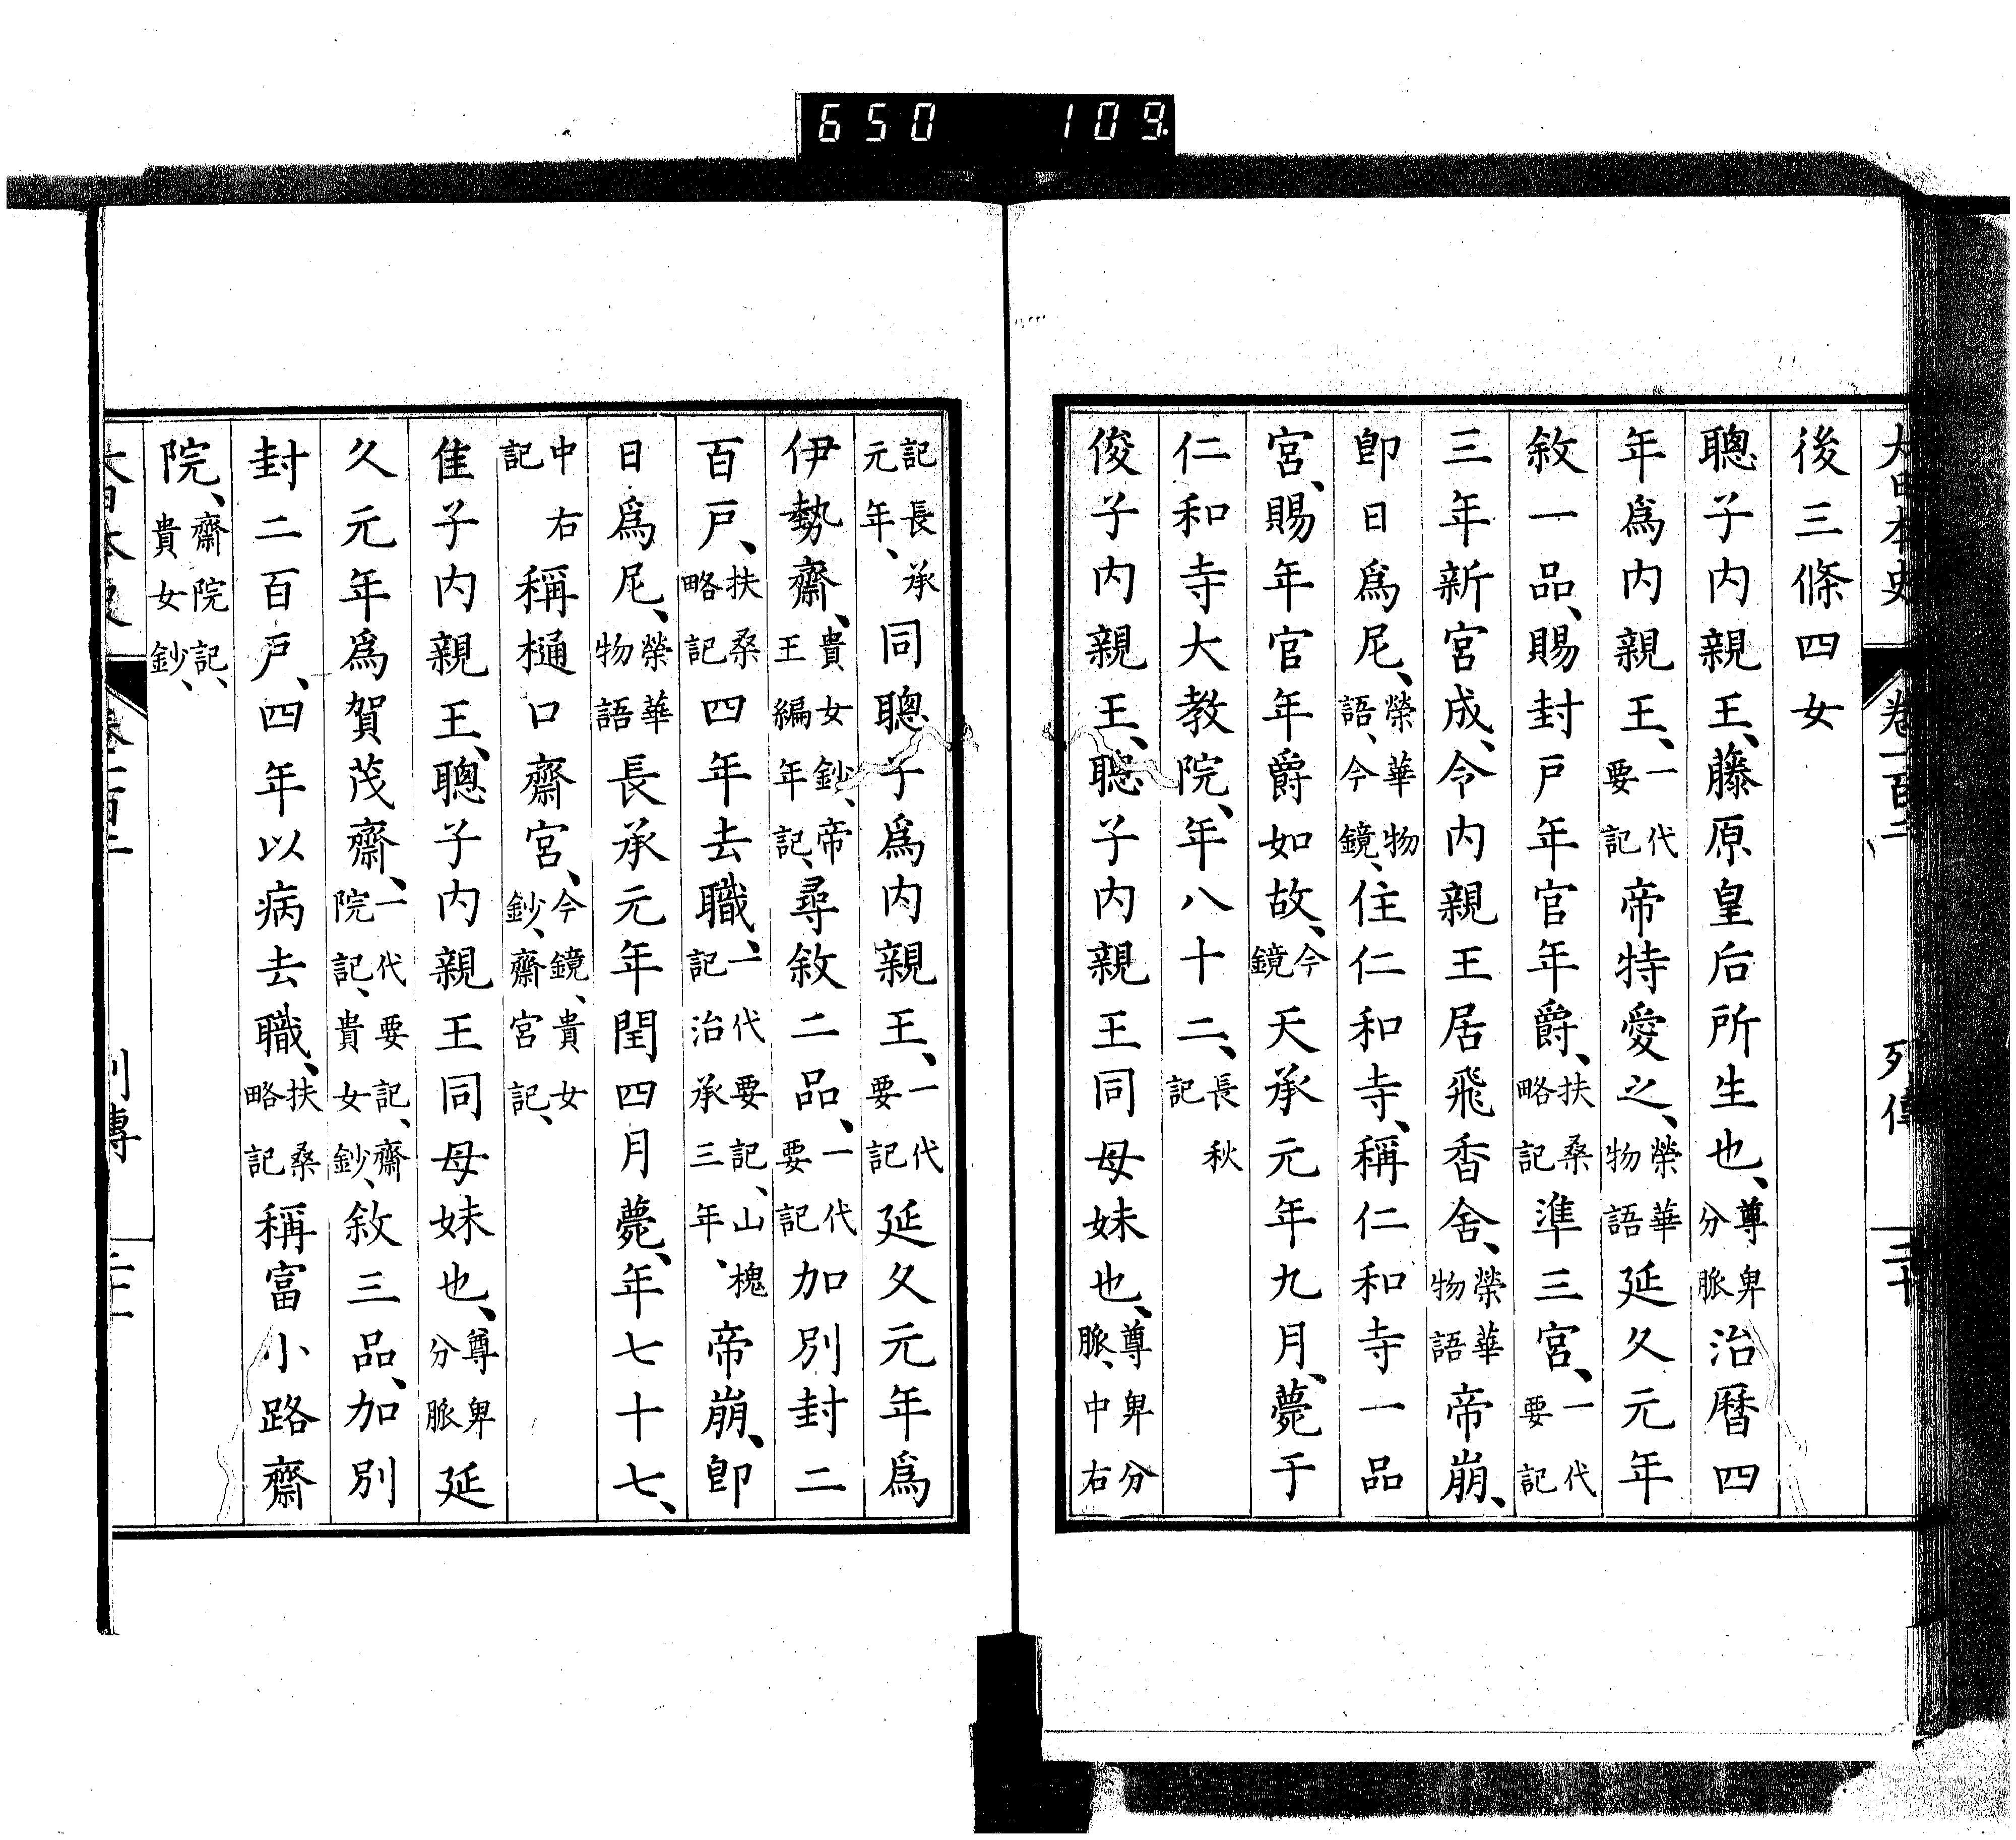 650 109
大日本史 卷一百二 列傳 二十
後三條四女
聰子內親王、藤原皇后所生也、尊卑分脈治曆四
年爲內親王、一代要記帝特愛之、榮華物語延久元年
敘一品、賜封戸年官年爵、扶桑略記準三宮、一代要記
三年新宮成、令內親王居飛香舍、榮華物語帝崩、
卽日爲尼、榮華物語、今鏡、住仁和寺、稱仁和寺一品
宮、賜年官年爵如故、今鏡天承元年九月、薨于
仁和寺大教院、年八十二、長秋記
俊子內親王、聰子內親王同母妹也、尊卑分脈、中右
記長承元年、同聰子爲內親王、一代要記延久元年爲
伊勢齋、貴女鈔、帝王編年記、尋敘二品、一代要記加別封二
百戸、扶桑略記四年去職、一代要記、山槐記治承三年、帝崩、卽
日爲尼、榮華物語長承元年閏四月薨、年七十七、
中右記稱樋口齋宮、今鏡、貴女鈔、齋宮記、
佳子內親王、聰子內親王同母妹也、尊卑分脈延
久元年爲賀茂齋、一代要記、齋院記、貴女鈔、敘三品、加別
封二百戸、四年以病去職、扶桑略記稱富小路齋
院、齋院記、貴女鈔、
大日本史 卷一百二 列傳 二十一